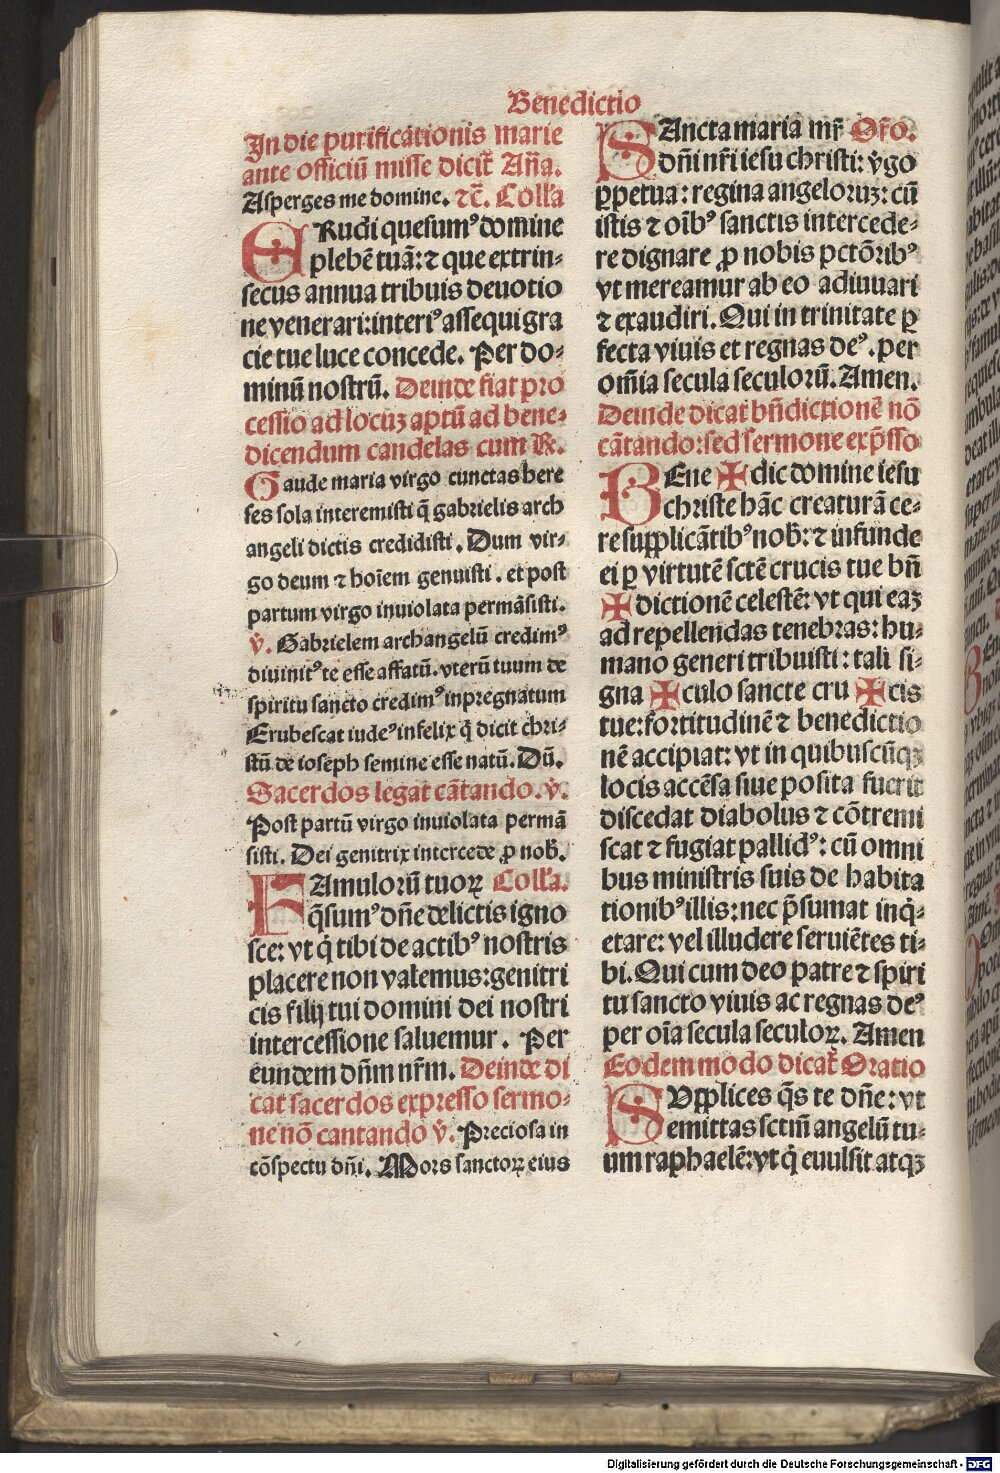 Benedictio
In die purificationis marie
ante officiū misse dicit᷑ Añā.
Asperges me domine. ⁊c̄. Coll'a
ERudi quesumꝰ domine
plebē tuā: ⁊ que extrin-
secus annua tribuis deuotio
ne venerari: interiꝰ assequi gra
cie tue luce concede. Per do-
minū nostrū. Deinde fiat pro
cessio ad locuꝫ aptū ad bene-
dicendum candelas cum R.
Gaude maria virgo cunctas here
ses sola interemisti q̄ gabrielis arch
angeli dictis credidisti. Dum vir-
go deum ⁊ hoīem genuisti. et post
partum virgo inuiolata permāsisti.
v̄. Gabrielem archangelū credimꝰ
diuinitꝰ te esse affatū. vterū tuum de
spiritu sancto credimꝰ inpregnatum
Erubescat iudeꝰ infelix q̄ dicit chri-
stū de ioseph semine esse natū. Dū.
Sacerdos legat cātando. v̄.
Post partū virgo inuiolata permā
sisti. Dei genitrix intercede ꝓ nob̄.
FAmulorū tuoꝝ Coll'a.
q̄sumꝰ dn̄e delictis igno
sce: vt q̇ tibi de actibꝰ nostris
placere non valemus: genitri
cis filij tui domini dei nostri
intercessione saluemur. Per
eundem dn̄m nr̄m. Deinde di
cat sacerdos expresso sermo-
ne nō cantando v̄. Preciosa in
cōspectu dn̄i. Mors sanctoꝝ eius
SAncta maria mr̄ Oro.
dn̄i nr̄i iesu christi: v̄go
ꝑpetua: regina angeloruꝫ: cū
istis ⁊ oībꝰ sanctis intercede-
re dignare ꝓ nobis pctōribꝰ
vt mereamur ab eo adiuuari
⁊ exaudiri. Qui in trinitate ꝑ
fecta viuis et regnas deꝰ. per
omīa secula seculorū. Amen.
Deinde dicat bn̄dictionē nō
cātando: sed sermone exp̄sso
BEne ✠ dic domine iesu
christe hāc creaturā ce-
re supplicātibꝰ nob̄: ⁊ infunde
ei ꝑ virtutē sctē crucis tue bn̄
✠ dictionē celestē: vt qui eaꝫ
ad repellendas tenebras: hu-
mano generi tribuisti: tali si-
gna ✠ culo sancte cru ✠ cis
tue: fortitudinē ⁊ benedictio
nē accipiat: vt in quibuscūqꝫ
locis accēsa siue posita fuerit
discedat diabolus ⁊ cōtremi
scat ⁊ fugiat pallidꝰ: cū omni
bus ministris suis de habita
tionibꝰ illis: nec p̄sumat inq̇-
etare: vel illudere seruiētes ti-
bi. Qui cum deo patre ⁊ spiri
tu sancto viuis ac regnas deꝰ
per oīa secula seculoꝝ. Amen
Eodem modo dicat᷑ Oratio
SVpplices q̄s te dn̄e: vt
emittas sctm̄ angelū tu-
um raphaelē: vt q̇ euulsit atqꝫ
Digitalisierung gefördert durch die Deutsche Forschungsgemeinschaft - DFG